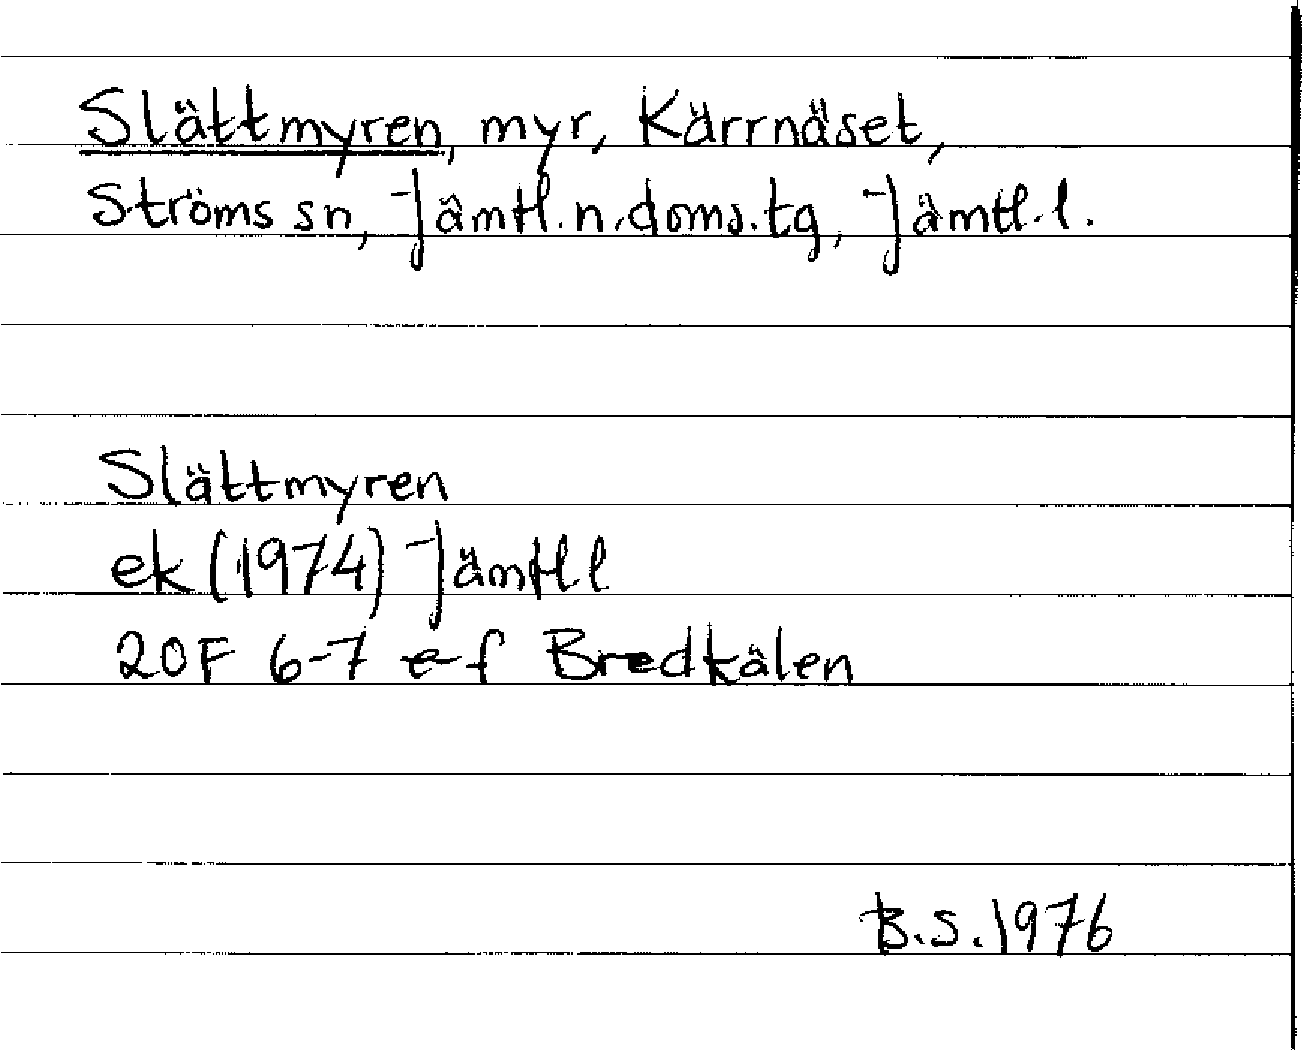 Slättmyren, myr, Kärrnäset,
Ströms sn, Jämtl.n.doms.tg, Jämtl.l.
Slättmyren
ek (1974) Jämtl l
20F 6-7 e-f Bredkälen
B.S. 1976